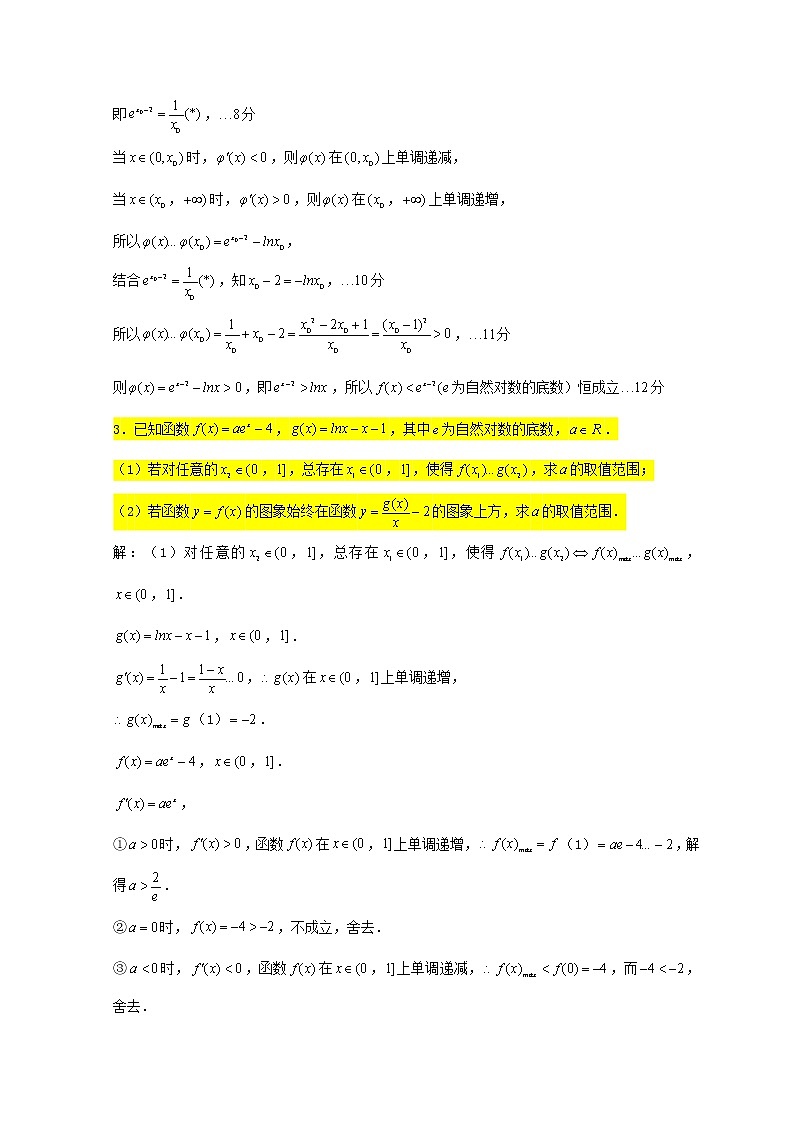 即 e^{x₀−2} = 1/x₀ (*) ，…8分
当 x∈(0,x₀) 时，φ′(x) < 0 ，则 φ(x) 在 (0,x₀) 上单调递减，
当 x∈(x₀，+∞) 时，φ′(x) > 0 ，则 φ(x) 在 (x₀，+∞) 上单调递增，
所以 φ(x)… φ(x₀) = e^{x₀−2} − lnx₀，
结合 e^{x₀−2} = 1/x₀ (*) ，知 x₀ − 2 = −lnx₀，…10分
所以 φ(x)… φ(x₀) = 1/x₀ + x₀ − 2 = (x₀² − 2x₀ + 1)/x₀ = (x₀ − 1)²/x₀ > 0 ，…11分
则 φ(x) = e^{x−2} − lnx > 0 ，即 e^{x−2} > lnx ，所以 f(x) < e^{x−2} (e 为自然对数的底数）恒成立…12分
3．已知函数 f(x) = ae^x − 4 ，g(x) = lnx − x − 1 ，其中 e 为自然对数的底数，a∈R ．
（1）若对任意的 x₂∈(0，1]，总存在 x₁∈(0，1]，使得 f(x₁)… g(x₂) ，求 a 的取值范围；
（2）若函数 y = f(x) 的图象始终在函数 y = g(x)/x − 2 的图象上方，求 a 的取值范围．
解：（1）对任意的 x₂∈(0，1]，总存在 x₁∈(0，1]，使得 f(x₁)… g(x₂) ⇔ f(x)max … g(x)max ，
x∈(0，1]．
g(x) = lnx − x − 1 ，x∈(0，1]．
g′(x) = 1/x − 1 = (1 − x)/x … 0 ，∴ g(x) 在 x∈(0，1] 上单调递增，
∴ g(x)max = g（1）= −2 ．
f(x) = ae^x − 4 ，x∈(0，1]．
f′(x) = ae^x ，
①a > 0 时，f′(x) > 0 ，函数 f(x) 在 x∈(0，1] 上单调递增，∴ f(x)max = f（1）= ae − 4… − 2 ，解
得 a > 2/e ．
②a = 0 时，f(x) = −4 > −2 ，不成立，舍去．
③a < 0 时，f′(x) < 0 ，函数 f(x) 在 x∈(0，1] 上单调递减，∴ f(x)max < f(0) = −4 ，而 −4 < −2 ，
舍去．